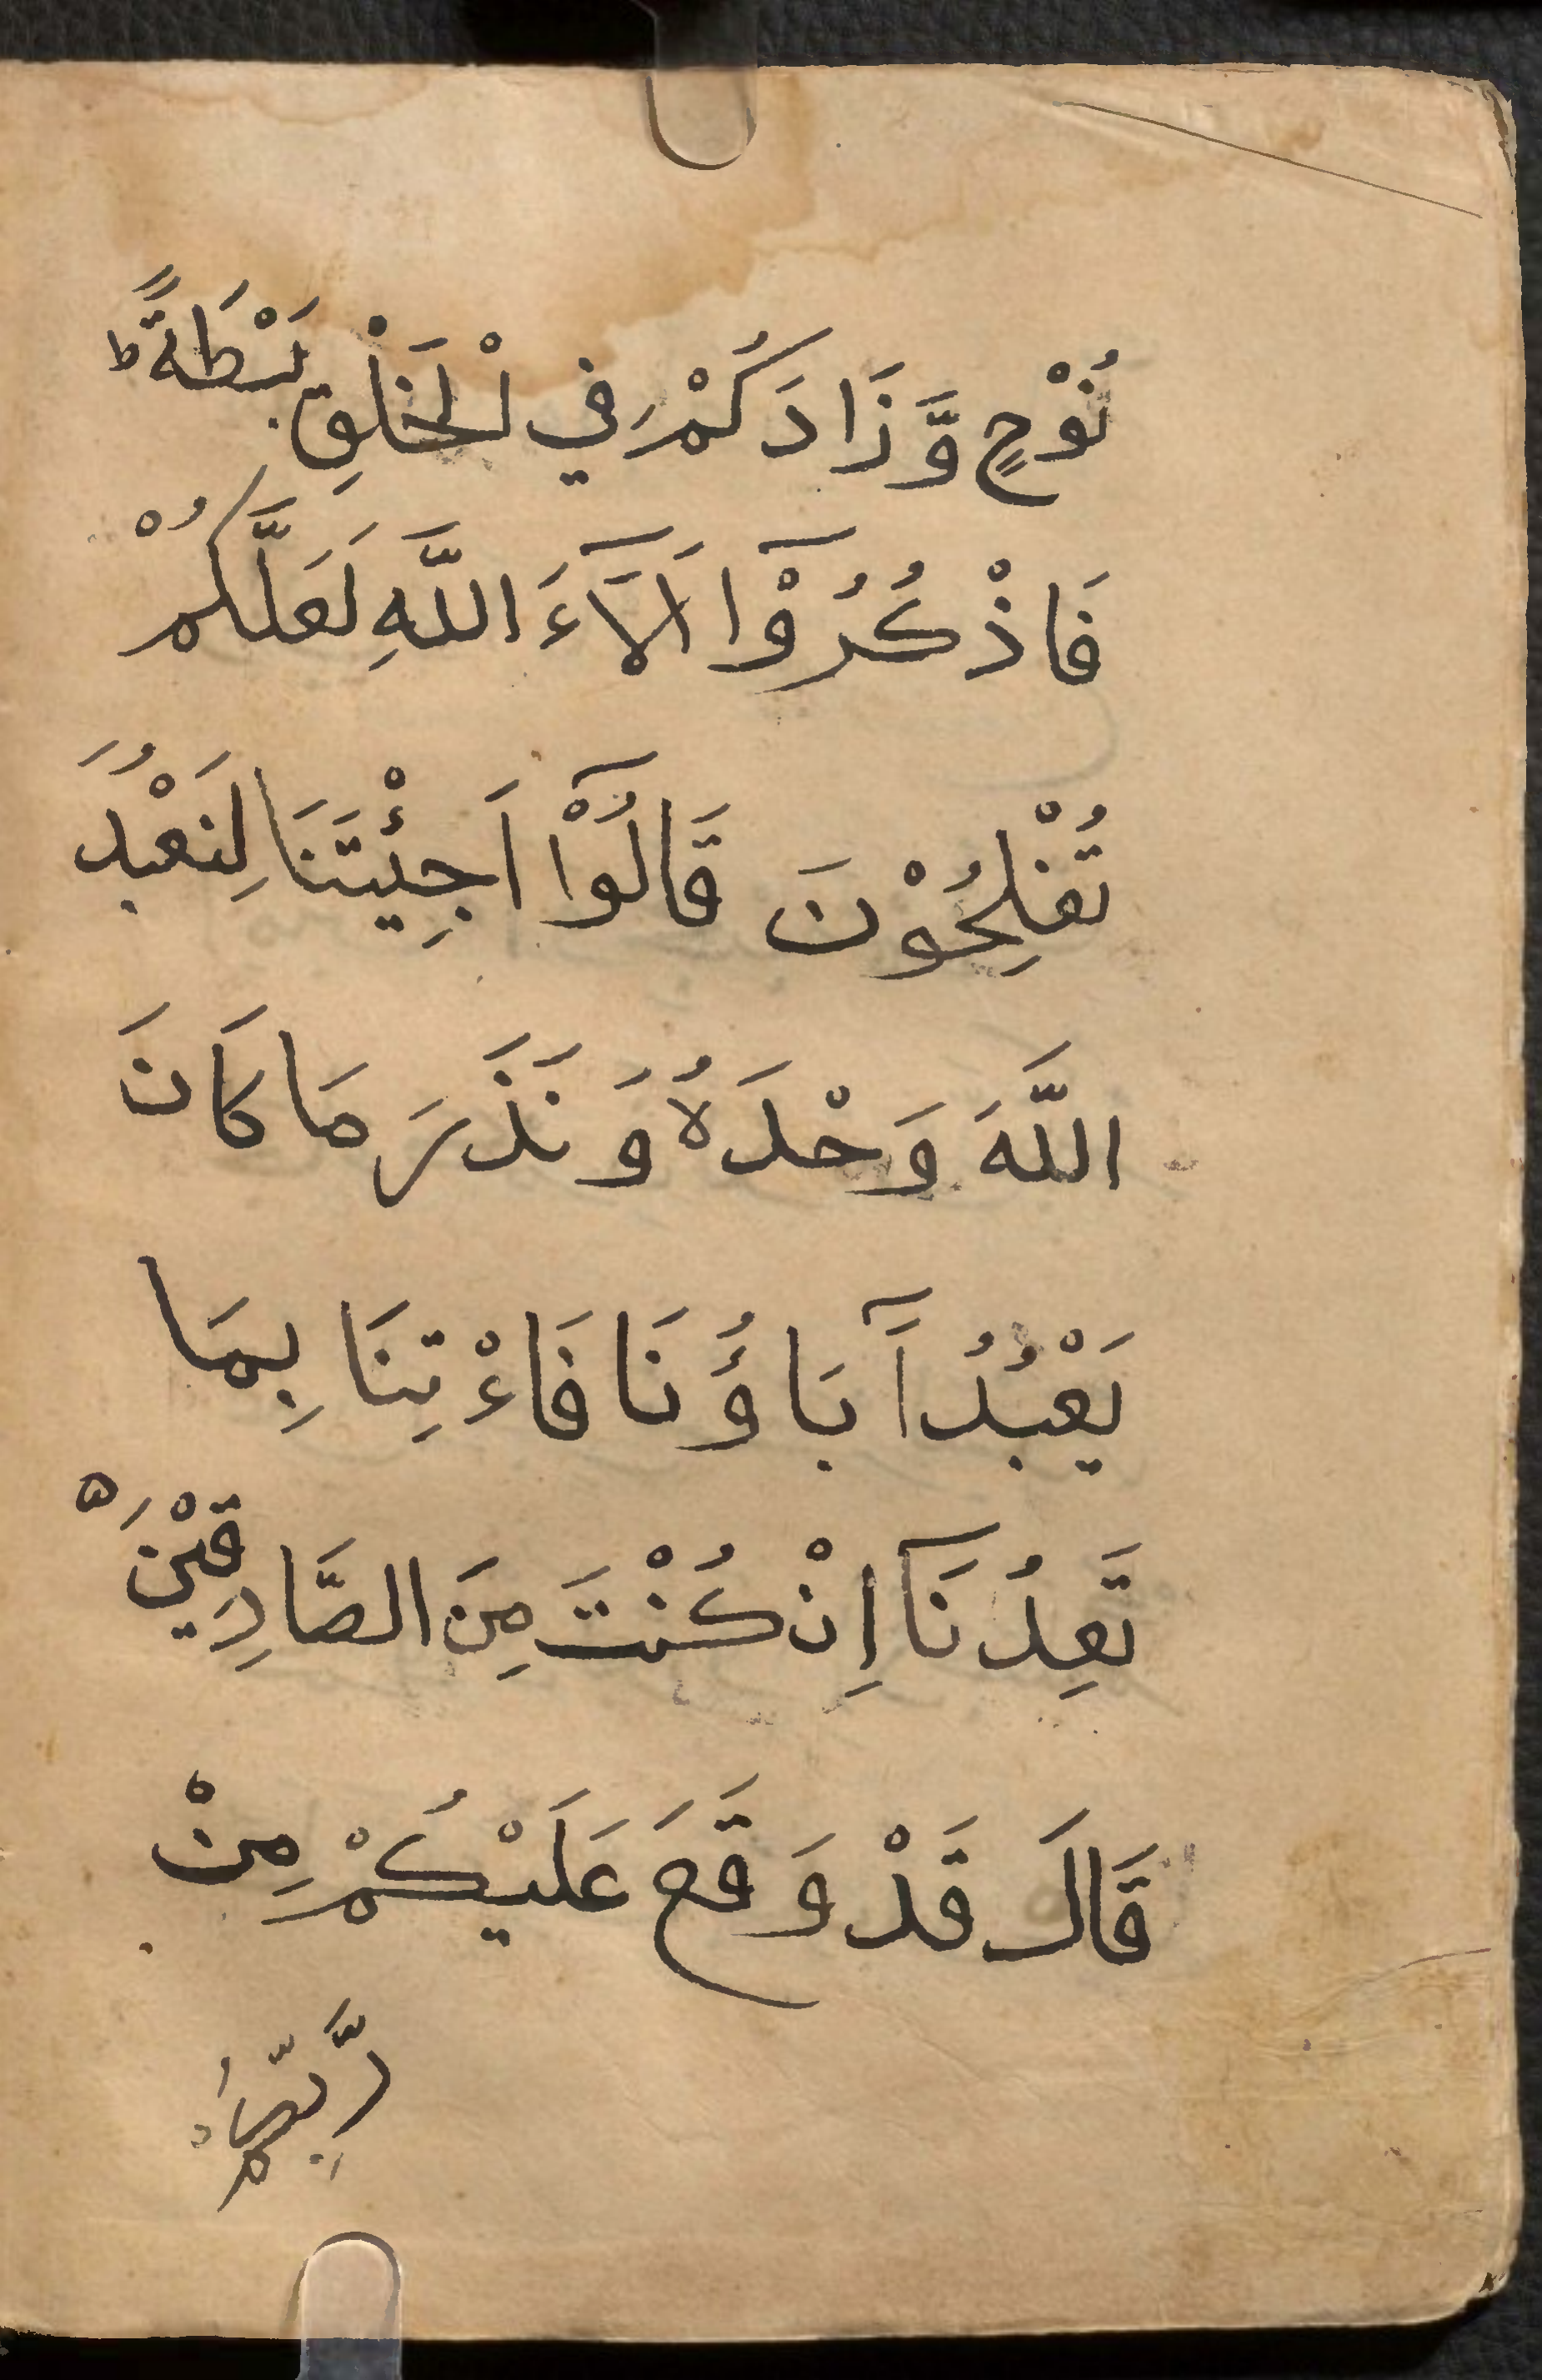 نُوْحٍ وَّ زَادَكُمْ فِي لْخَلْقِ بَسْطَةً ط
فَاذْكُرُوْٓا اَلَآءَ اللَّهِ لَعَلَّكُمْ
تُفْلِحُوْنَ قَالُوْٓا اَجِئْتَنَا لِنَعْبُدَ
اللَّهَ وَحْدَهُ وَ نَذَرَ مَا كَانَ
يَعْبُدُ آَبَاؤُنَا فَاءْتِنَا بِمَا
تَعِدُنَآ اِنْ كُنْتَ مِنَ الصَّادِقِيْنَ ه
قَالَ قَدْ وَقَعَ عَلَيْكُمْ مِنْ
رَّبِّكُمْ